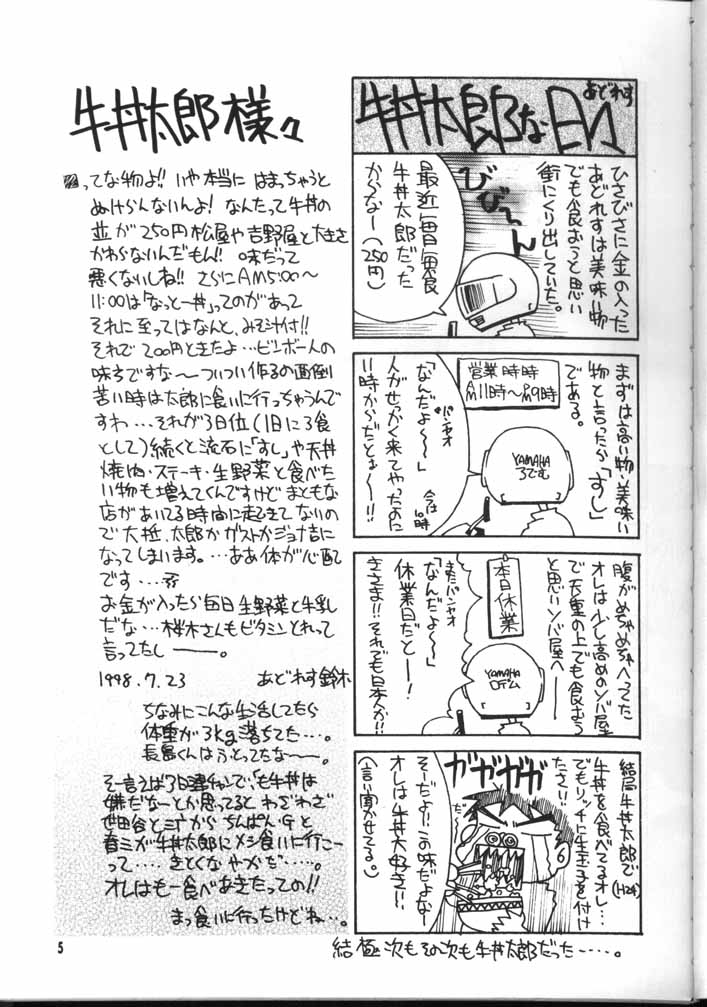 あどれす
牛丼太郎な日々
ひさびさに金の入った
あどれすは美味い物
でも食おうと思い
街にくり出していた。
びびーん
最近毎日毎食
牛丼太郎だった
からなー(250円)
まずは高い物・美味い
物と言ったら「すし」
である。
営業時間
AM11時〜PM9時
YAMAHA
ろでむ
「なんだよ〜〜」
バンキャオ
人がせっかく来てやったのに
11時からだとぉ〜!!
今は10時
腹がめちゃめちゃへってた
オレは少し高めのソバ屋
で天重の上でも食おう
と思いソバ屋へ──
本日休業
YAMAHA
ロデム
またバンキャオ
「なんだよ〜〜」
休業日だと──!
きさま!!それでも日本人か!!
結局牛丼太郎で(H24)
牛丼を食べてるオレ…
でもリッチに生玉子を付け
たさ!!
ガガガガ
そーだよ!!この味だよな〜
オレは牛丼大好き!!
(言い聞かせてる。)
結極次もその次も牛丼太郎だった……。
牛丼太郎様々
ってな物よ!!いや本当にはまっちゃうと
ぬけらんないんよ!なんたって牛丼の
並が250円松屋や吉野屋と大きさ
かわらないんだもん!!味だって
悪くないしね!!さらにAM5:00〜
11:00は「なっとー丼」ってのがあって
それに至ってはなんと、みそ汁付!!
それで200円ときたよ…ビンボー人の
味方ですな〜ついつい作るの面倒
苦い時は太郎に食いに行っちゃうんで
すわ…それが3日位(1日に3食
として)続くと流石に「すし」や天丼
焼肉・ステーキ・生野菜と食べた
い物も増えてくんですけどまともな
店があいてる時間に起きてないの
で大抵、太郎かガストかジョナ吉に
なってしまいます。…ああ体が心配
です…
お金が入ったら毎日生野菜と牛乳
だな…桜木さんもビタミンとれって
言ってたし──。
1998.7.23
あどれす鈴木
ちなみにこんな生活してたら
体重が3kg落ちてた…。
長島くんはふとってたな〜〜。
そー言えば3日連チャンで「も牛丼は
嫌だなーとか思ってると わざわざ
世田谷と三丁から ちんぱん・Gと
春ミが牛丼太郎にメシ食いに行こー
って…… きとくな やかだ……。
オレはもー食べあきたっての!!
まっ食いに行ったけどね…。
5